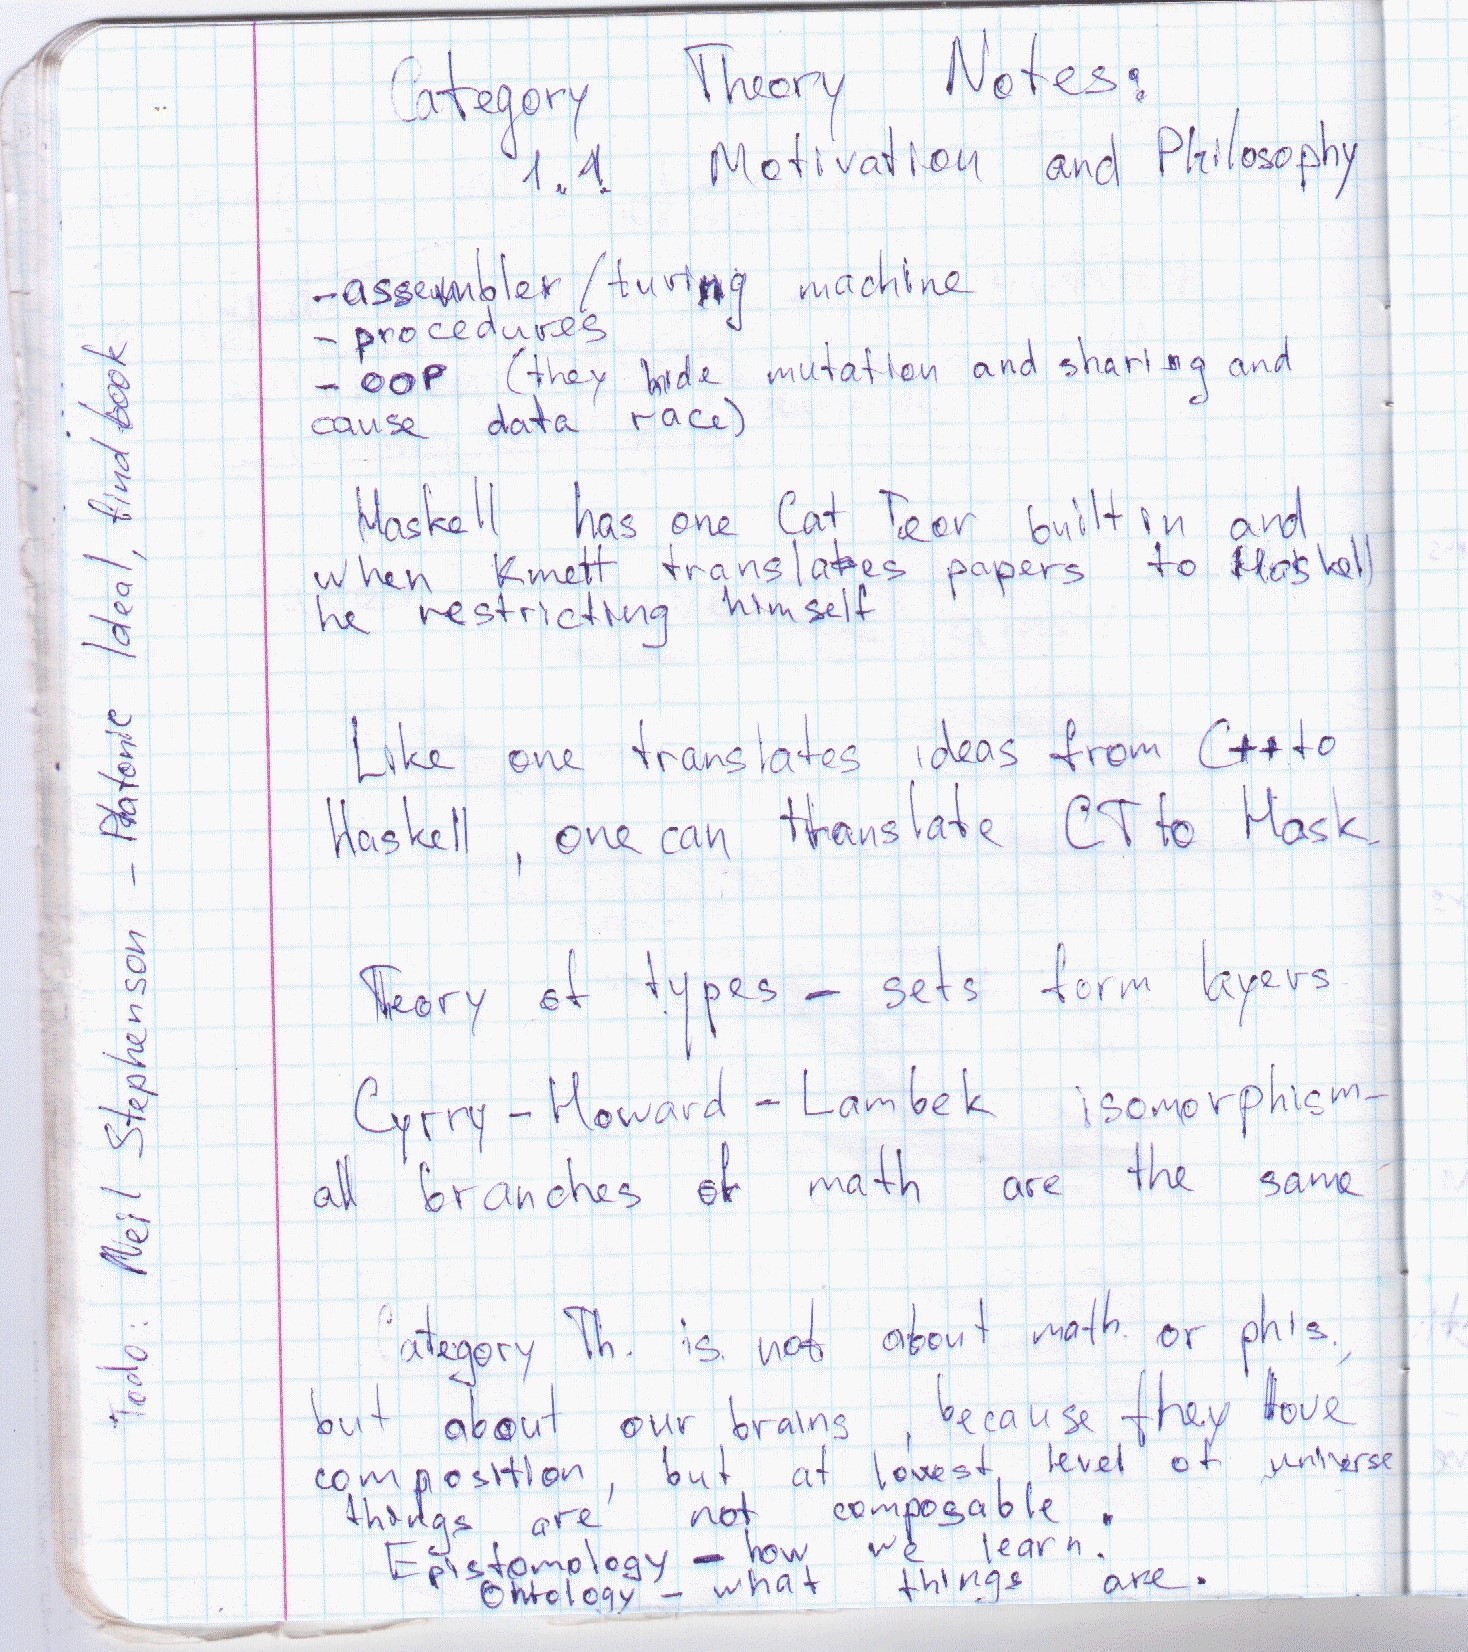 Category Theory Notes:
1.1. Motivation and Philosophy
-assembler/turing machine
- procedures
- OOP (they hide mutation and sharing and
cause data race)
Haskell has one Cat Teor built in and
when Kmett translates papers to Haskell
he restricting himself
Like one translates ideas from C++ to
Haskell, one can translate CT to Hask.
Theory of types - sets form layers
Cyrry - Howard - Lambek isomorphism -
all branches of math are the same
Category Th. is not about math. or phis.,
but about our brains, because they love
composition, but at lowest level of universe
things are not composable.
Epistomology - how we learn.
Ontology - what things are.
Todo: Neil Stephenson - Platonic Ideal, find book